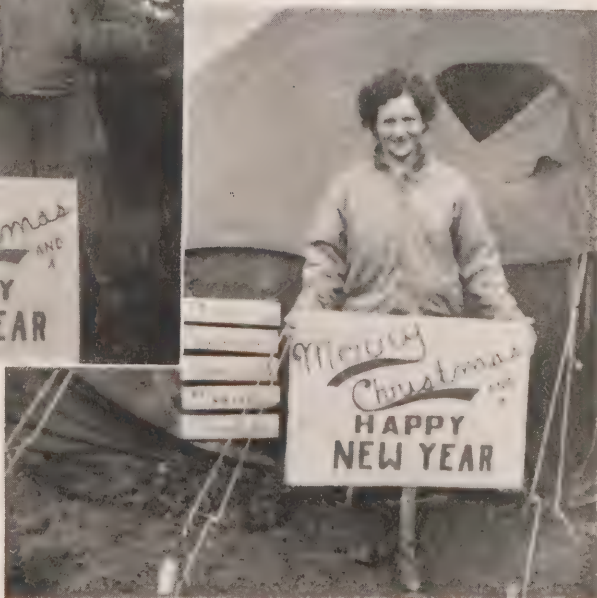 mas
AND
A
Y
EAR
Merry
Christmas
HAPPY
NEW YEAR